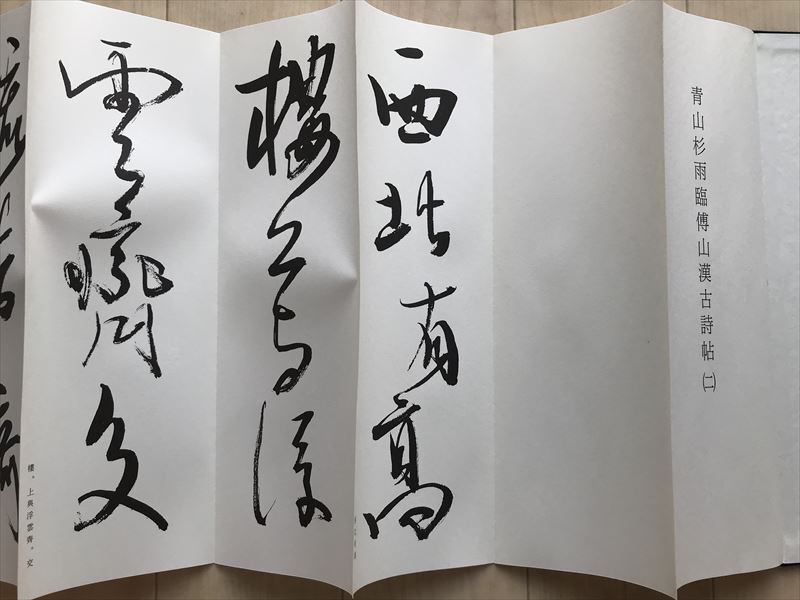 青山杉雨臨傅山漢古詩帖(二)
西北有高
樓上与浮
雲齊交
樓。上與浮雲齊。交